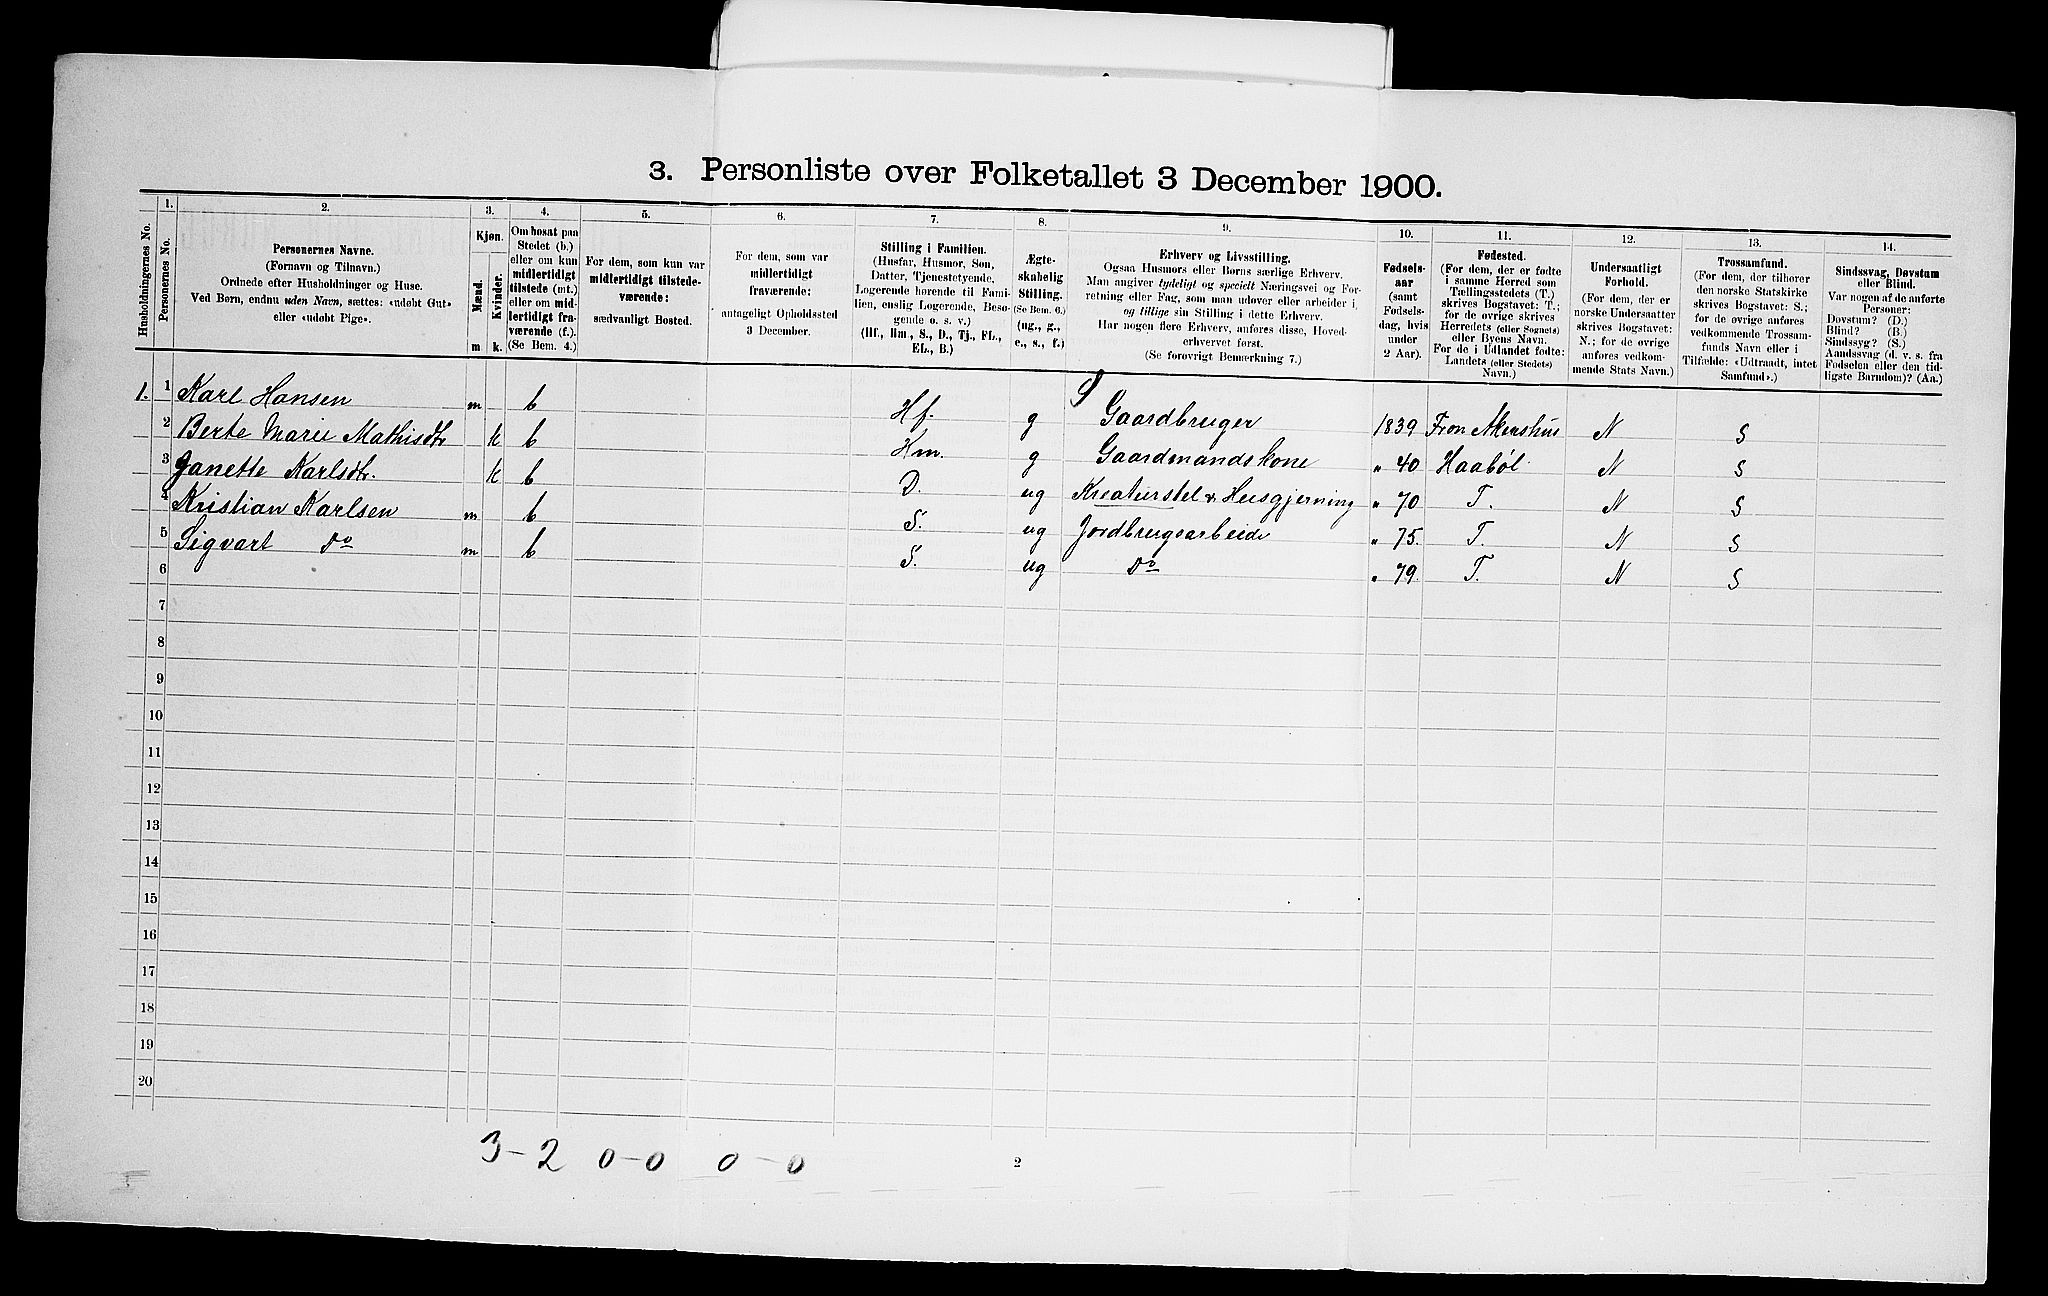 3. Personliste over Folketallet 3 December 1900.
Husholdningernes No.
1.
Personernes No.
2.
Personernes Navne.
(Fornavn og Tilnavn.)
Ordnede efter Husholdninger og Huse.
Ved Børn, endnu uden Navn, sættes: «udøbt Gut»
eller «udøbt Pige».
3.
Kjøn.
Mænd.
Kvinder.
m
k.
4.
Om bosat paa
Stedet (b.)
eller om kun
midlertidigt
tilstede (mt.)
eller om mid-
lertidigt fra-
værende (f.).
(Se Bem. 4.)
5.
For dem, som kun var
midlertidigt tilstede-
værende:
sædvanligt Bosted.
6.
For dem, som var
midlertidigt
fraværende:
antageligt Opholdssted
3 December.
7.
Stilling i Familien.
(Husfar, Husmor, Søn,
Datter, Tjenestetyende,
Logerende hørende til Fami-
lien, enslig Logerende, Besø-
gende o. s. v.)
(Hf., Hm., S., D., Tj., FL.,
EL., B.)
8.
Ægte-
skabelig
Stilling.
(Se Bem. 6.)
(ug., g.,
e., s., f.)
9.
Erhverv og Livsstilling.
Ogsaa Husmors eller Børns særlige Erhverv.
Man angiver tydeligt og specielt Næringsvei og For-
retning eller Fag, som man udøver eller arbeider i,
og tillige sin Stilling i dette Erhverv.
Har nogen flere Erhverv, anføres disse, Hoved-
erhvervet først.
(Se forøvrigt Bemerkning 7.)
10.
Fødsels-
aar
(samt
Fødsels-
dag, hvis
under
2 Aar).
11.
Fødested.
(For dem, der er fødte
i samme Herred som
Tællingsstedets (T.)
skrives Bogstavet: T.;
for de øvrige skrives
Herredets (eller Sognets)
eller Byens Navn.
For de i Udlandet fødte:
Landets (eller Stedets)
Navn.)
12.
Undersaatligt
Forhold.
(For dem, der er
norske Undersaatter
skrives Bogstavet:
N.; for de øvrige
anføres vedkom-
mende Stats Navn.)
13.
Trossamfund.
(For dem, der tilhører
den norske Statskirke
skrives Bogstavet: S.;
for de øvrige anføres
vedkommende Trossam-
funds Navn eller i
Tilfælde: «Udtraadt, intet
Samfund».)
14.
Sindssvag, Døvstum
eller Blind.
Var nogen af de anførte
Personer:
Døvstum? (D.)
Blind? (B.)
Sindssyg? (S.)
Aandssvag (d. v. s. fra
Fødselen eller den tid-
ligste Barndom)? (Aa.)
1. 1 Karl Hansen m b Hf. g Gaardbruger 1839 Fron Akershus N S
2 Berte Marie Mathisdtr k b Hm. g Gaardmandskone " 40 Haabøl. N S
3 Janette Karlsdtr. k b D. ug Kreaturstel & Husgjerning " 70 T. N S
4 Kristian Karlsen m b S. ug Jordbrugsarbeide " 75. T. N S
5 Sigvart Do m b S. ug Do " 79. T. N S
6
7
8
9
10
11
12
13
14
15
16
17
18
19
20
3-2 0-0 0-0
2